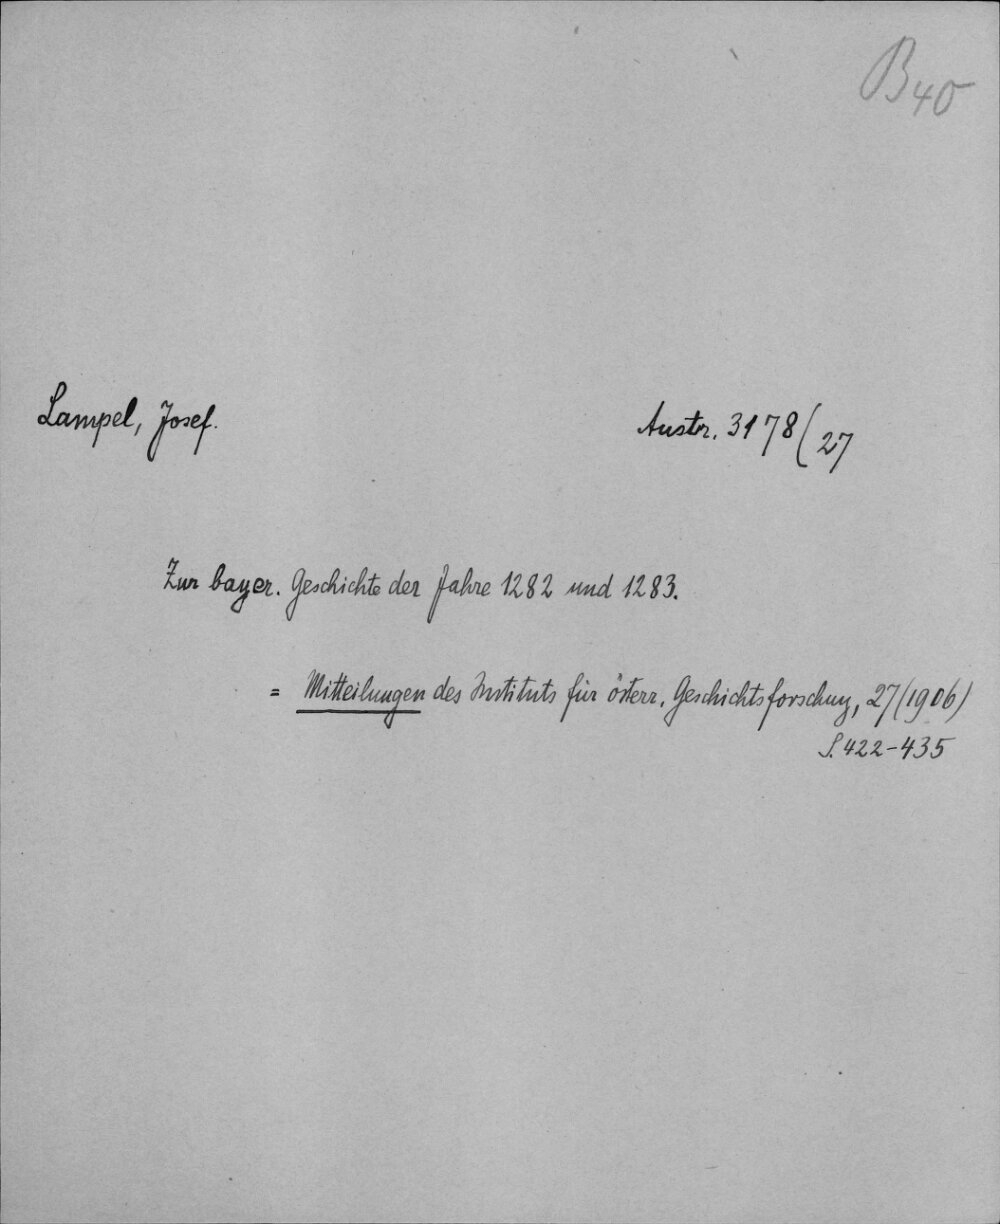 B40
Lampel, Josef.
Austr. 3178(27
Zur bayer. Geschichte der Jahre 1282 und 1283.
= Mitteilungen des Instituts für österr. Geschichtsforschung, 27(1906)
S. 422-435